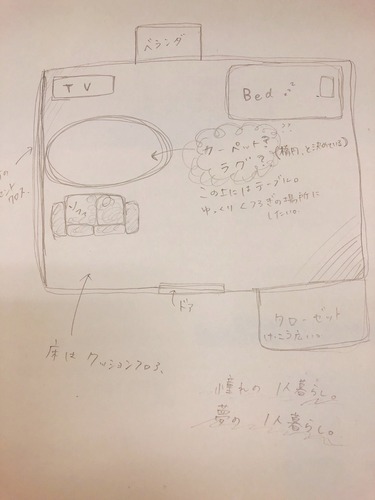 ベランダ
TV
Bed
カーペット?
ラグ?
この上にはテーブル。
ゆっくりくつろぎの場所に
したい。
ソファ
ドア
クローゼット
けっこう広い。
床はクッションフロア。
憧れの1人暮らし。
夢の1人暮らし。